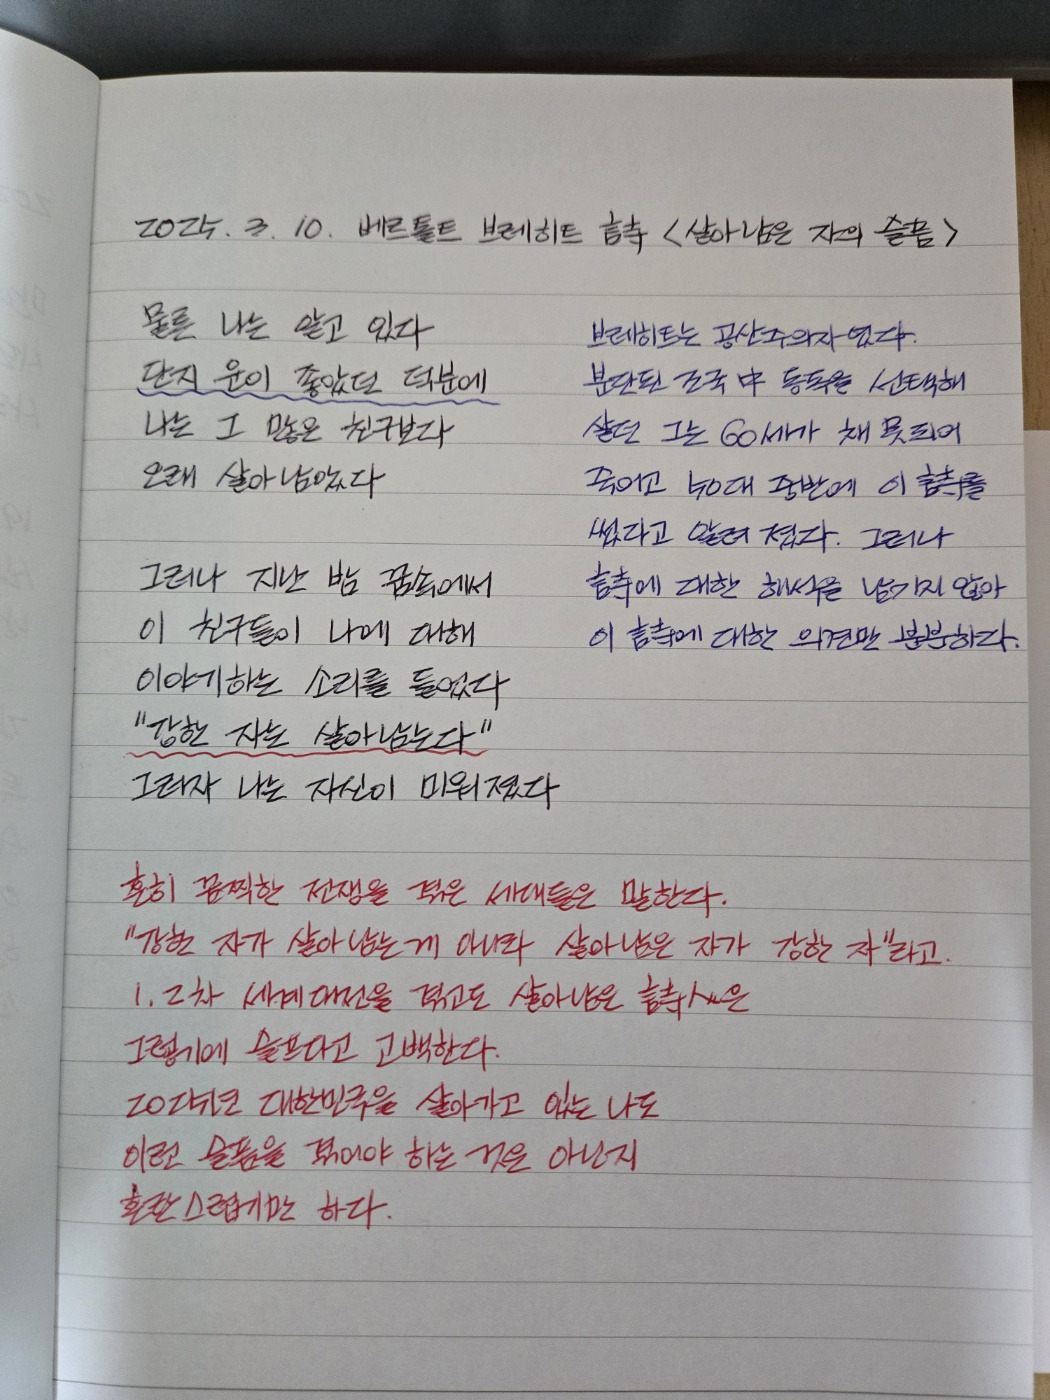 2025. 3. 10. 베르톨트 브레히트 詩 <살아남은 자의 슬픔>
물론 나는 알고 있다
단지 운이 좋았던 덕분에
나는 그 많은 친구보다
오래 살아남았다
그러나 지난 밤 꿈속에서
이 친구들이 나에 대해
이야기하는 소리를 들었다
"강한 자는 살아남는다"
그러자 나는 자신이 미워졌다
브레히트는 공산주의자였다.
분단된 조국 中 동독을 선택해
살던 그는 60세가 채 못되어
죽었고 40대 중반에 이 詩를
썼다고 알려졌다. 그러나
詩에 대한 해석을 남기지 않아
이 詩에 대한 의견만 분분하다.
흔히 끔찍한 전쟁을 겪은 세대들은 말한다.
"강한 자가 살아남는게 아니라 살아남은 자가 강한 자"라고.
1, 2차 세계대전을 겪고도 살아남은 詩人은
그렇기에 슬프다고 고백한다.
2025년 대한민국을 살아가고 있는 나도
이런 슬픔을 겪어야 하는 것은 아닌지
혼란스럽기만 하다.